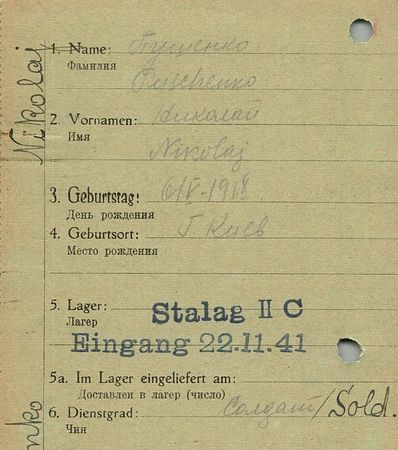 1. Name: Пущенко
Фамилия
Puschenko
2. Vornamen: Николай
Имя
Nikolaj
3. Geburtstag: 6/V-1918
День рождения
4. Geburtsort: Г Киев
Место рождения
5. Lager: Stalag II C
Лагер
Eingang 22.11.41
5a. Im Lager eingeliefert am:
Доставлен в лагер (число)
6. Dienstgrad: Солдат/Sold.
Чин
Nikolaj
nko